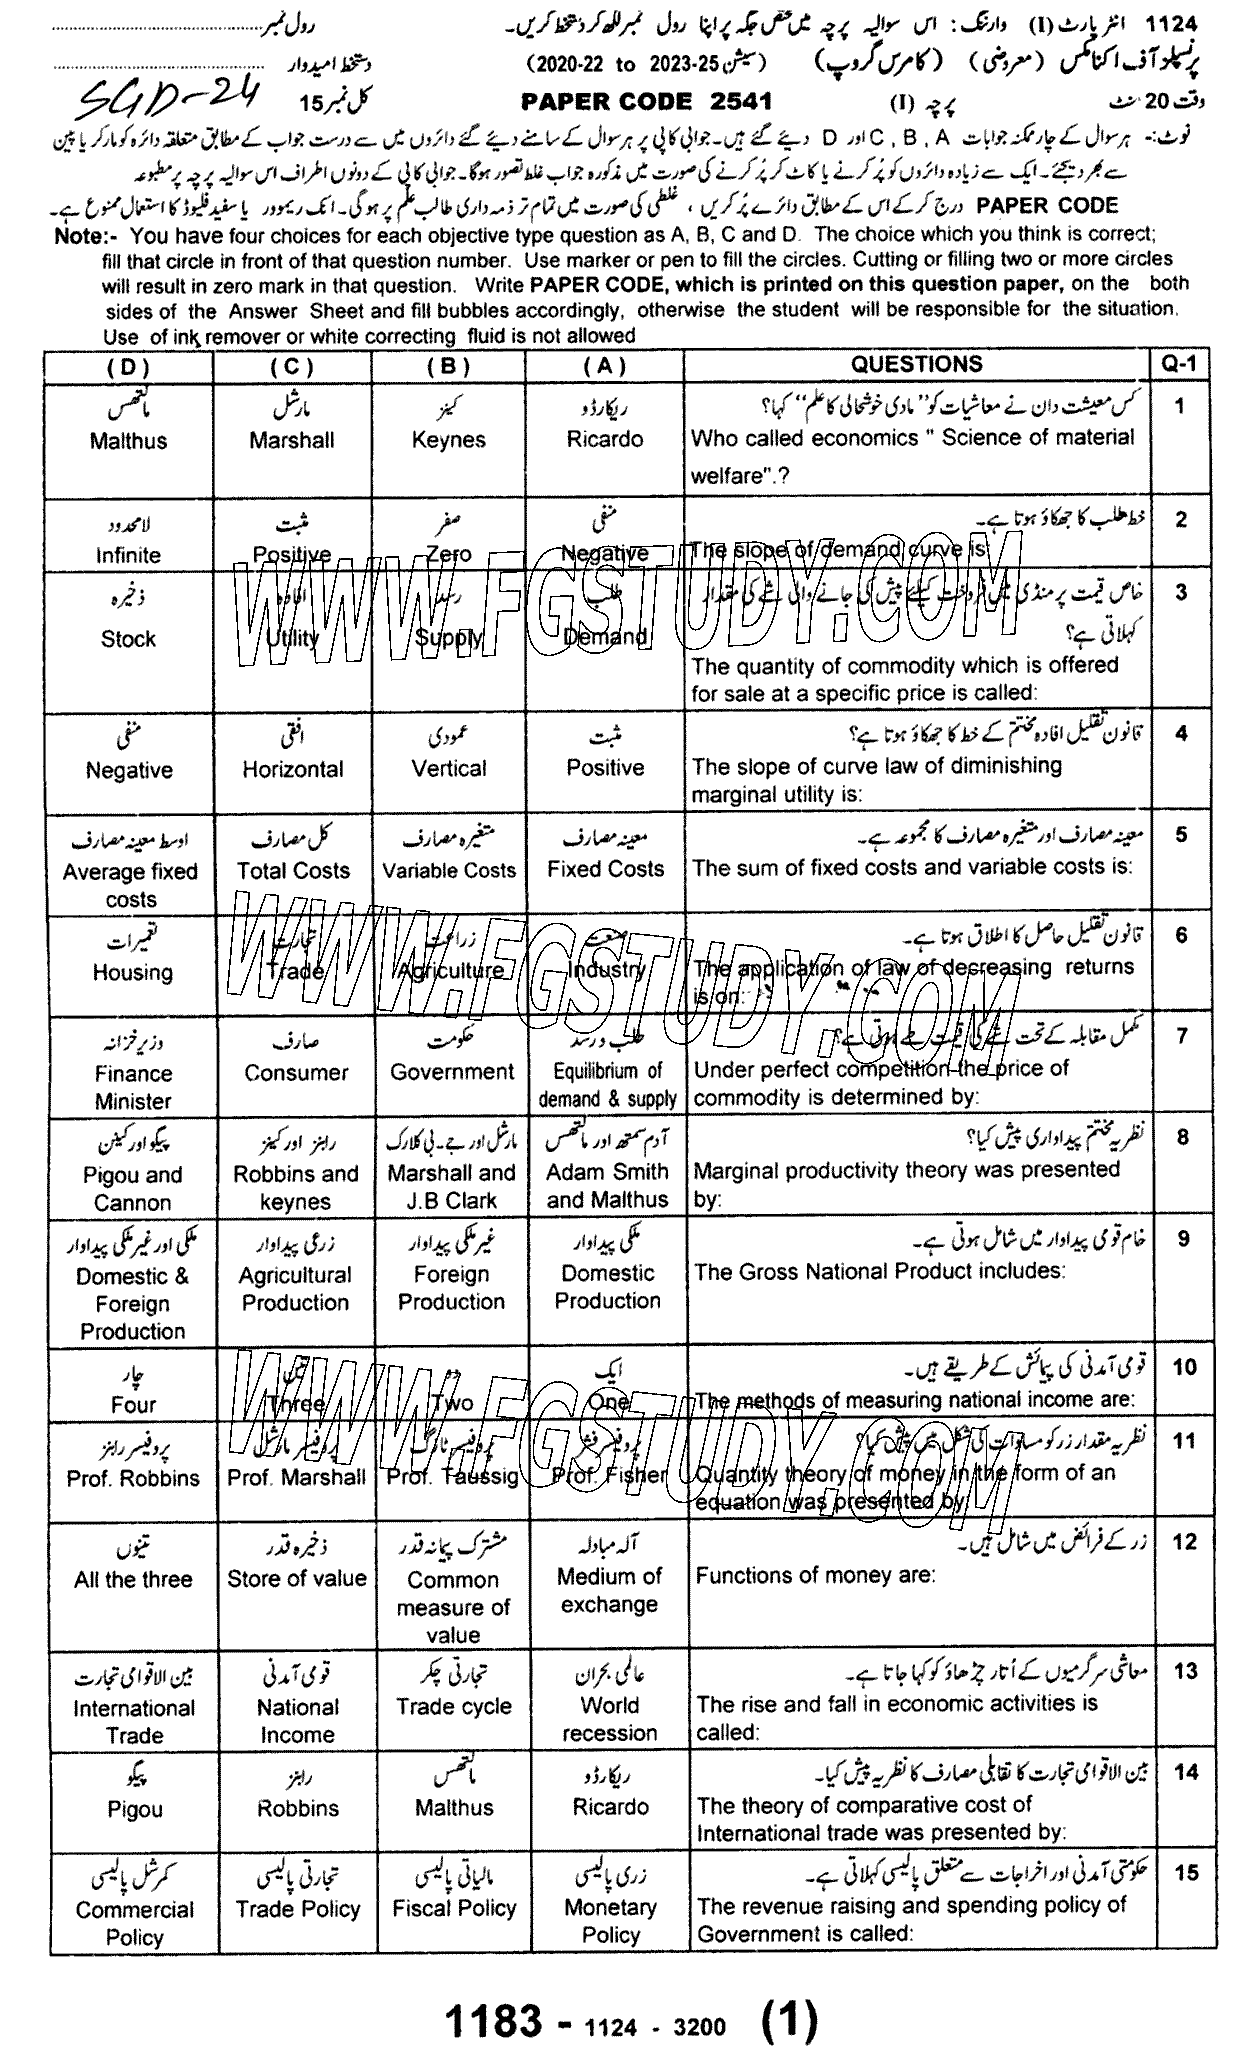 1124 انٹر پارٹ (I) وارننگ: اس سوالیہ پرچہ میں مختص جگہ پر اپنا رول نمبر لکھ کر دستخط کریں۔ رول نمبر
پرنسپلز آف اکنامکس (معروضی) (کامرس گروپ) (سیشن 2020-22 to 2023-25) دستخط امیدوار
وقت 20 منٹ پرچہ (I) PAPER CODE 2541 کل نمبر 15 SGD-24
نوٹ:- ہر سوال کے چار ممکنہ جوابات A ، B ، C اور D دیئے گئے ہیں۔ جوابی کاپی پر ہر سوال کے سامنے دیئے گئے دائروں میں سے درست جواب کے مطابق متعلقہ دائرہ کو مارکر یا پین
سے بھر دیجئے۔ ایک سے زیادہ دائروں کو پُر کرنے یا کاٹ کر پُر کرنے کی صورت میں مذکورہ جواب غلط تصور ہوگا۔ جوابی کاپی کے دونوں اطراف اس سوالیہ پرچہ پر مطبوعہ
PAPER CODE درج کر کے اس کے مطابق دائرے پُر کریں، غلطی کی صورت میں تمام تر ذمہ داری طالب علم پر ہوگی۔ انک ریموور یا سفید فلیوڈ کا استعمال ممنوع ہے۔
Note:- You have four choices for each objective type question as A, B, C and D. The choice which you think is correct;
fill that circle in front of that question number. Use marker or pen to fill the circles. Cutting or filling two or more circles
will result in zero mark in that question. Write PAPER CODE, which is printed on this question paper, on the both
sides of the Answer Sheet and fill bubbles accordingly, otherwise the student will be responsible for the situation.
Use of ink remover or white correcting fluid is not allowed
(D) (C) (B) (A) QUESTIONS Q-1
مالتھس مارشل کینز ریکارڈو کس معیشت دان نے معاشیات کو "مادی خوشحالی کا علم" کہا؟ 1
Malthus Marshall Keynes Ricardo Who called economics " Science of material
welfare".?
لامحدود مثبت صفر منفی خط طلب کا جھکاؤ ہوتا ہے۔ 2
Infinite Positive Zero Negative The slope of demand curve is
ذخیرہ افادہ رسد طلب خاص قیمت پر منڈی میں فروخت کیلئے پیش کی جانے والی شے کی مقدار 3
کہلاتی ہے؟
Stock Utility Supply Demand The quantity of commodity which is offered
for sale at a specific price is called:
منفی افقی عمودی مثبت قانون تقلیل افادہ مختتم کے خط کا جھکاؤ ہوتا ہے؟ 4
Negative Horizontal Vertical Positive The slope of curve law of diminishing
marginal utility is:
اوسط معینہ مصارف کل مصارف متغیرہ مصارف معینہ مصارف معینہ مصارف اور متغیرہ مصارف کا مجموعہ ہے۔ 5
Average fixed Total Costs Variable Costs Fixed Costs The sum of fixed costs and variable costs is:
costs
تعمیرات تجارت زراعت صنعت قانون تقلیل حاصل کا اطلاق ہوتا ہے۔ 6
Housing Trade Agriculture Industry The application of law of decreasing returns
is on:
وزیر خزانہ صارف حکومت طلب و رسد مکمل مقابلہ کے تحت شے کی قیمت طے ہوتی ہے؟ 7
Finance Consumer Government Equilibrium of Under perfect competition the price of
Minister demand & supply commodity is determined by:
پیگو اور کینن رابنز اور کینز مارشل اور جے۔بی کلارک آدم سمتھ اور مالتھس نظریہ مختتم پیداواری پیش کیا؟ 8
Pigou and Robbins and Marshall and Adam Smith Marginal productivity theory was presented
Cannon keynes J.B Clark and Malthus by:
ملکی اور غیر ملکی پیداوار زرعی پیداوار غیر ملکی پیداوار ملکی پیداوار خام قومی پیداوار میں شامل ہوتی ہے۔ 9
Domestic & Agricultural Foreign Domestic The Gross National Product includes:
Foreign Production Production Production
Production
چار تین دو ایک قومی آمدنی کی پیمائش کے طریقے ہیں۔ 10
Four Three Two One The methods of measuring national income are:
پروفیسر رابنز پروفیسر مارشل پروفیسر ٹازگ پروفیسر فشر نظریہ مقدار زر کو مساوات کی شکل میں پیش کیا؟ 11
Prof. Robbins Prof. Marshall Prof. Taussig Prof. Fisher Quantity theory of money in the form of an
equation was presented by
تینوں ذخیرہ قدر مشترک پیمانہ قدر آلہ مبادلہ زر کے فرائض میں شامل ہیں۔ 12
All the three Store of value Common Medium of Functions of money are:
measure of exchange
value
بین الاقوامی تجارت قومی آمدنی تجارتی چکر عالمی بحران معاشی سرگرمیوں کے اُتار چڑھاؤ کو کہا جاتا ہے۔ 13
International National Trade cycle World The rise and fall in economic activities is
Trade Income recession called:
پیگو رابنز مالتھس ریکارڈو بین الاقوامی تجارت کا تقابلی مصارف کا نظریہ پیش کیا۔ 14
Pigou Robbins Malthus Ricardo The theory of comparative cost of
International trade was presented by:
کمرشل پالیسی تجارتی پالیسی مالیاتی پالیسی زری پالیسی حکومتی آمدنی اور اخراجات سے متعلق پالیسی کہلاتی ہے۔ 15
Commercial Trade Policy Fiscal Policy Monetary The revenue raising and spending policy of
Policy Policy Government is called:
WWW.FGSTUDY.COM
WWW.FGSTUDY.COM
WWW.FGSTUDY.COM
1183 - 1124 - 3200 (1)